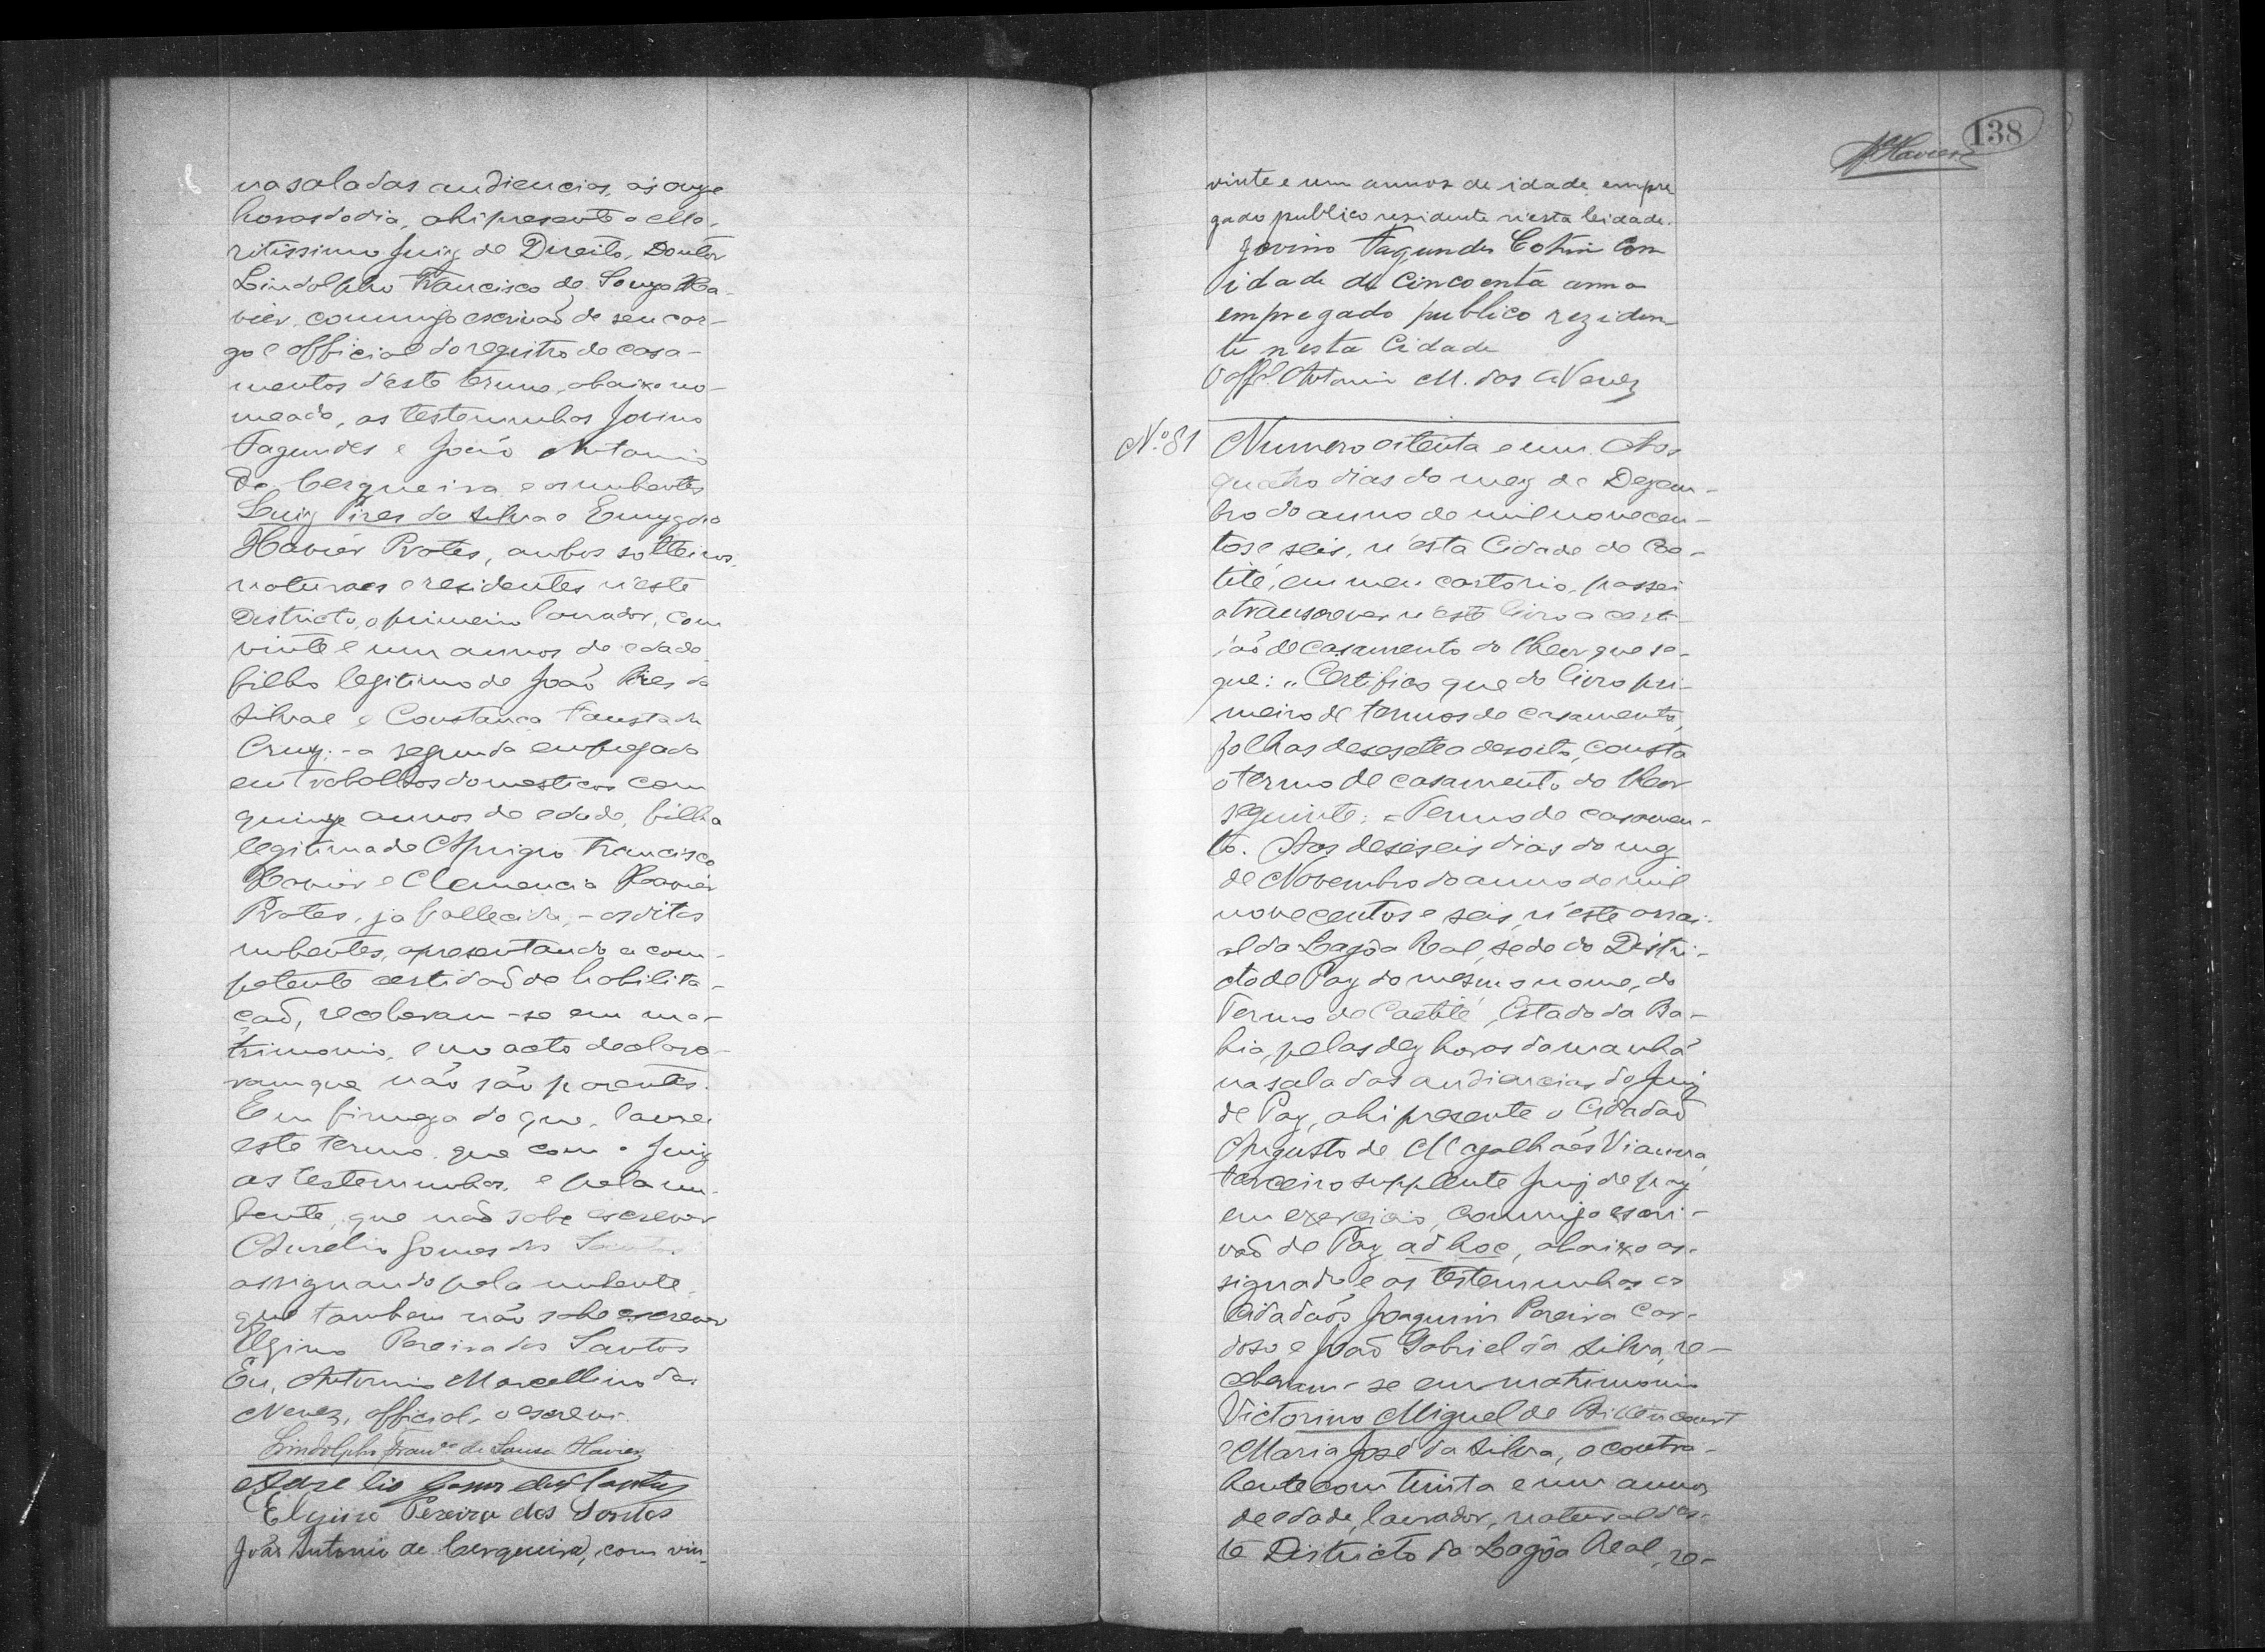 na sala das audiencias, ás onze
horas do dia, ahi presente o Me-
ritissimo Juiz de Direito, Doutor
Lindolpho Francisco de Souza Xa-
vier, commigo escrivaõ de seu car-
go e official do registro de casa-
mentos d'este termo, abaixo no-
meado, as testemunhas Jovino
Fagundes e João Antonio
de Cerqueira e os nubentes
Luiz Pires da Silva e Emygdia
Xavier Prates, ambos solteiros,
naturaes e residentes n'este
Districto, o primeiro lavrador, com
vinte e um annos de edade
filho legitimo de João Pires da
Silva e Constança Fausta da
Cruz; - a segunda empregada
em trabalhos domesticos com
quinze annos de edade, filha
legitima de Aprigio Francisco
Xavier e Clemencia Xavier
Prates, já fallecida, - os ditos
nubentes, apresentando a com-
petente certidaõ de habilita-
çaõ, receberam-se em ma-
trimonio, e no acto declara-
ram que não são parentes.
Em firmeza do que, lavrei
este termo, que com o Juiz
as testemunhas, e pela nu-
bente, que naõ sabe escrever
Aurelio Gomes dos Santos
assignando pela nubente,
que tambem não sabe escrever
Elgino Pereira dos Santos
Eu, Antonio Marcellino das
Neves, official, o escrevi.
Lindolpho Franco. de Souza Xavier
Aurelio Gomes dos Santos
Elgino Pereira dos Santos
João Antonio de Cerqueira, com vin-
138
Xavier
vinte e um annos de idade empre
gado publico rezidente n'esta Cidade.
Jovino Fagundes Cotrim Com
idade de Cincoenta anno
empregado publico reziden
te nesta Cidade
O offal. Antonio M. das Neves
No. 81
Numero oitenta e um. Aos
quatro dias do mez de Dezem-
bro do anno de mil novecen-
tos e seis, n'esta Cidade de Cae-
tité, em meu cartorio, passei
a transcrever n'este livro a certi-
daõ de casamento do theor que se-
gue: "Certifico que do livro pri-
meiro de termos de casamento,
folhas desesete a desoito, consta
o termo de casamento do theor
seguinte: = Termo de casamen-
to. Aos deseseis dias do mez
de Novembro do anno de mil
novecentos e seis, n'este arrai-
al da Lagôa Real, sede do Distri-
cto de Paz do mesmo nome, do
Termo de Caetité, Estado da Ba-
hia, pelas dez horas da manhã
na sala das audiencias do Juiz
de Paz, ahi presente o Cidadaõ
Augusto de Magalhães Vianna,
terceiro supplente Juiz de paz
em exercicio, commigo escri-
vaõ de Paz ad hoc, abaixo as-
signado e as testemunhas os
Cidadaõs Joaquim Pereira Car-
doso e João Gabriel da Silva, re-
ceberam-se em matrimonio
Victorino Miguel de Bittencourt
e Maria José da Silva, o contra-
hente com trinta e um annos
de edade, lavrador, natural des-
te Districto da Lagôa Real, re-